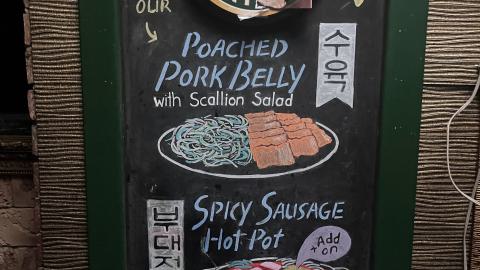 OUR
POACHED
PORK BELLY
with Scallion Salad
수육
SPICY SAUSAGE
Hot Pot
부대
Add
+ on